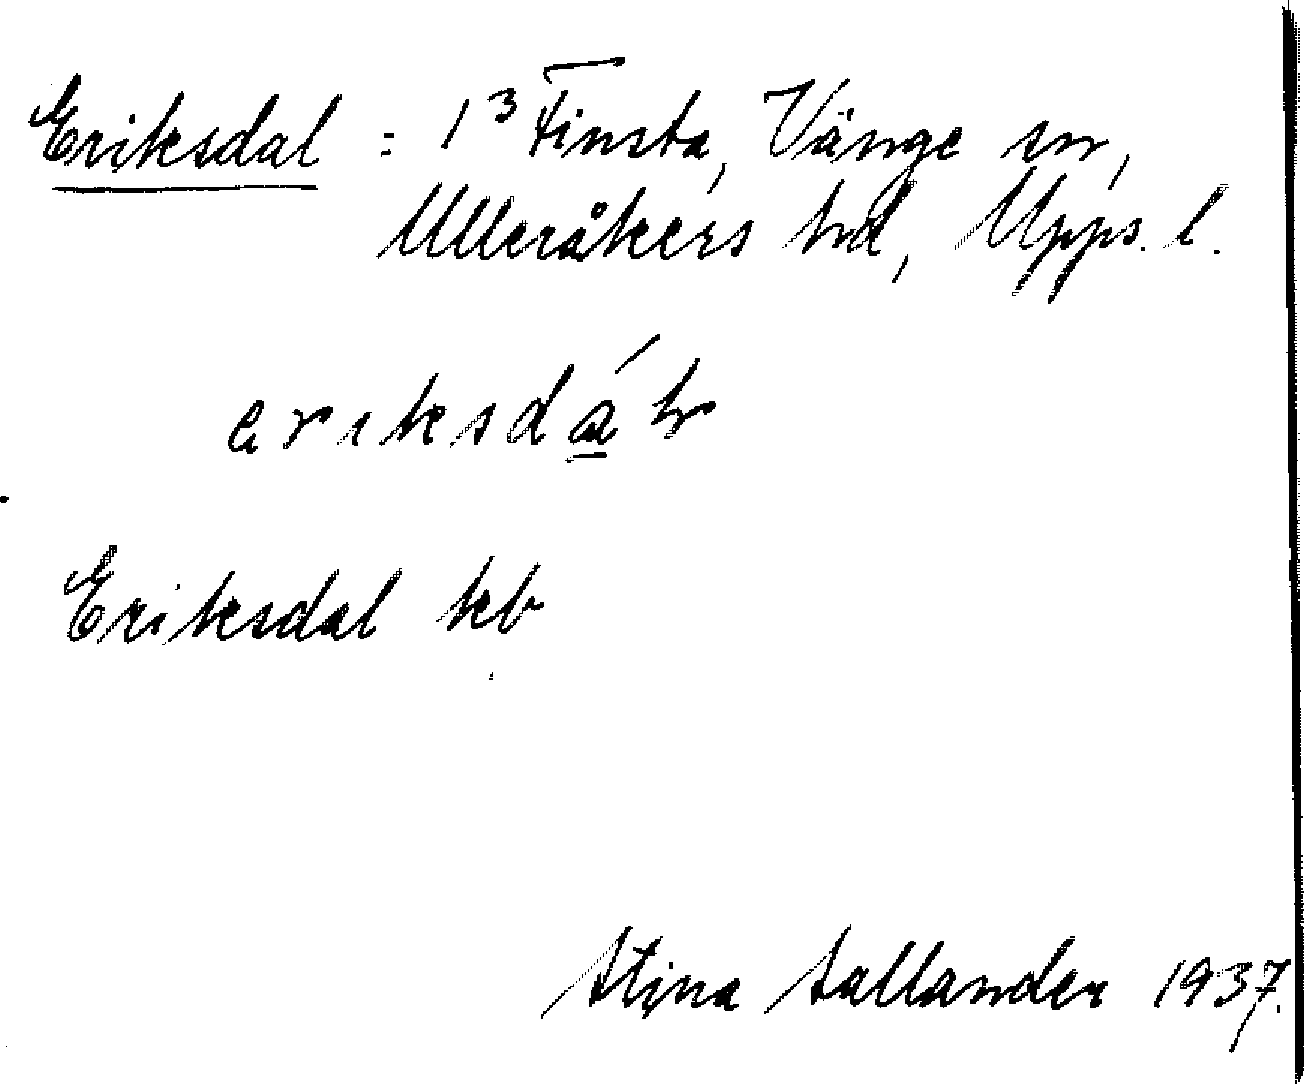 Eriksdal = 1³ Finsta, Vänge sn,
Ulleråkers hd, Upps. l.
eriksdá̱l
Eriksdal kb
Stina Sallander 1937.